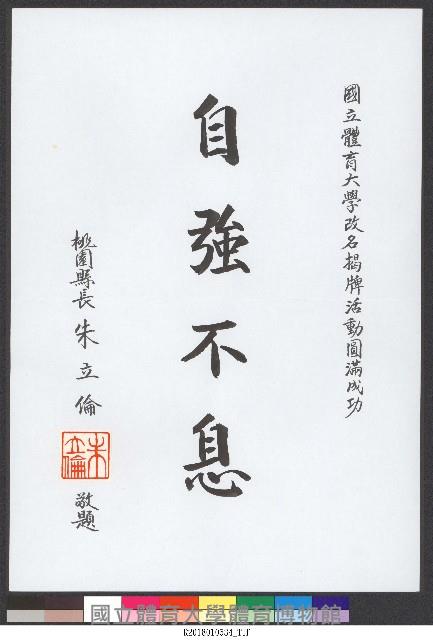 國立體育大學改名揭牌活動圓滿成功
自強不息
桃園縣長 朱立倫 敬題
朱立倫
國立體育大學體育博物館
k2018010534_T.tif